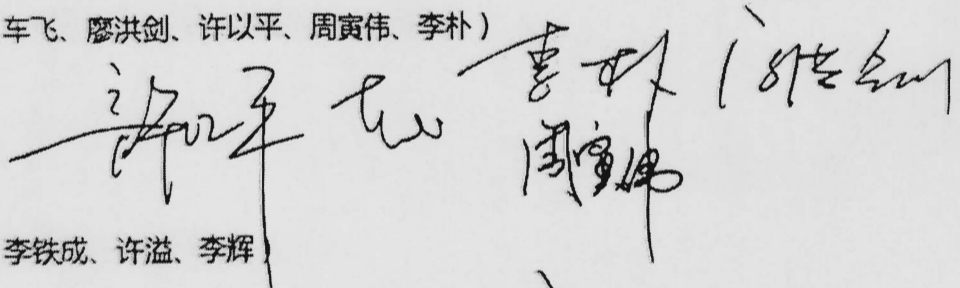 车飞、廖洪剑、许以平、周寅伟、李朴)
许以平 车飞 李朴 廖洪剑
周寅伟
李铁成、许溢、李辉